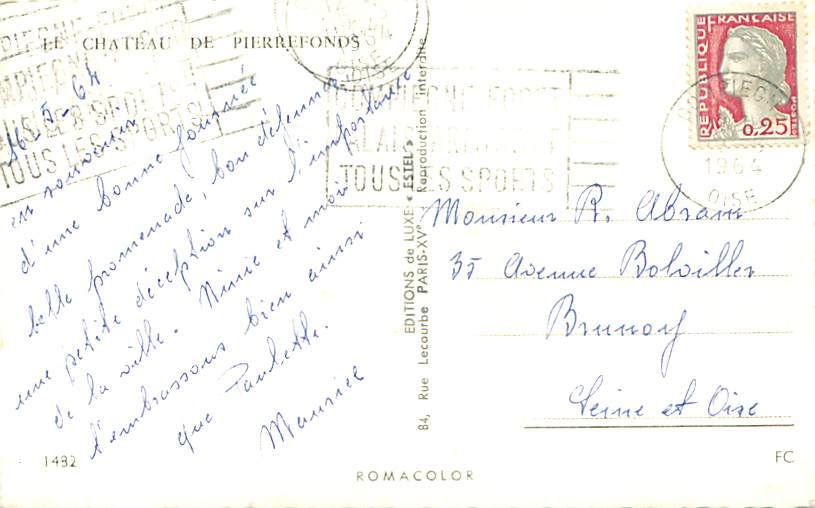 LE CHATEAU DE PIERREFONDS
16-5-64
en souvenir
d'une bonne journée
belle promenade, bon déjeuner
une petite déception sur l'importante
de la ville. Ninie et moi
t'embrassons bien ainsi
que Paulette.
Maurice
1482
EDITIONS de LUXE « ESTEL »
84, Rue Lecourbe PARIS-XVe Reproduction interdite
ROMACOLOR
TOUS LES SPORTS
TOUS LES SPORTS
1964
OISE
REPUBLIQUE FRANÇAISE
0,25
Monsieur R. Abram
35 Avenue Bolviller
Brunoy
Seine et Oise
FC